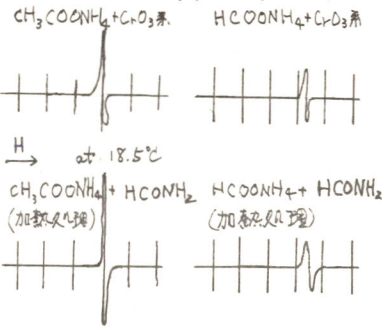 CH₃COONH₄+CrO₃系
HCOONH₄+CrO₃系
H
at 18.5℃
CH₃COONH₄ + HCONH₂
(加熱処理)
HCOONH₄+ HCONH₂
(加熱処理)